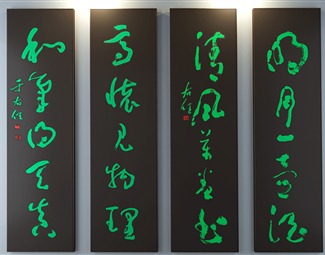 明月一壺酒
清風萬卷書
右任
高懷見物理
和氣得天真
于右任